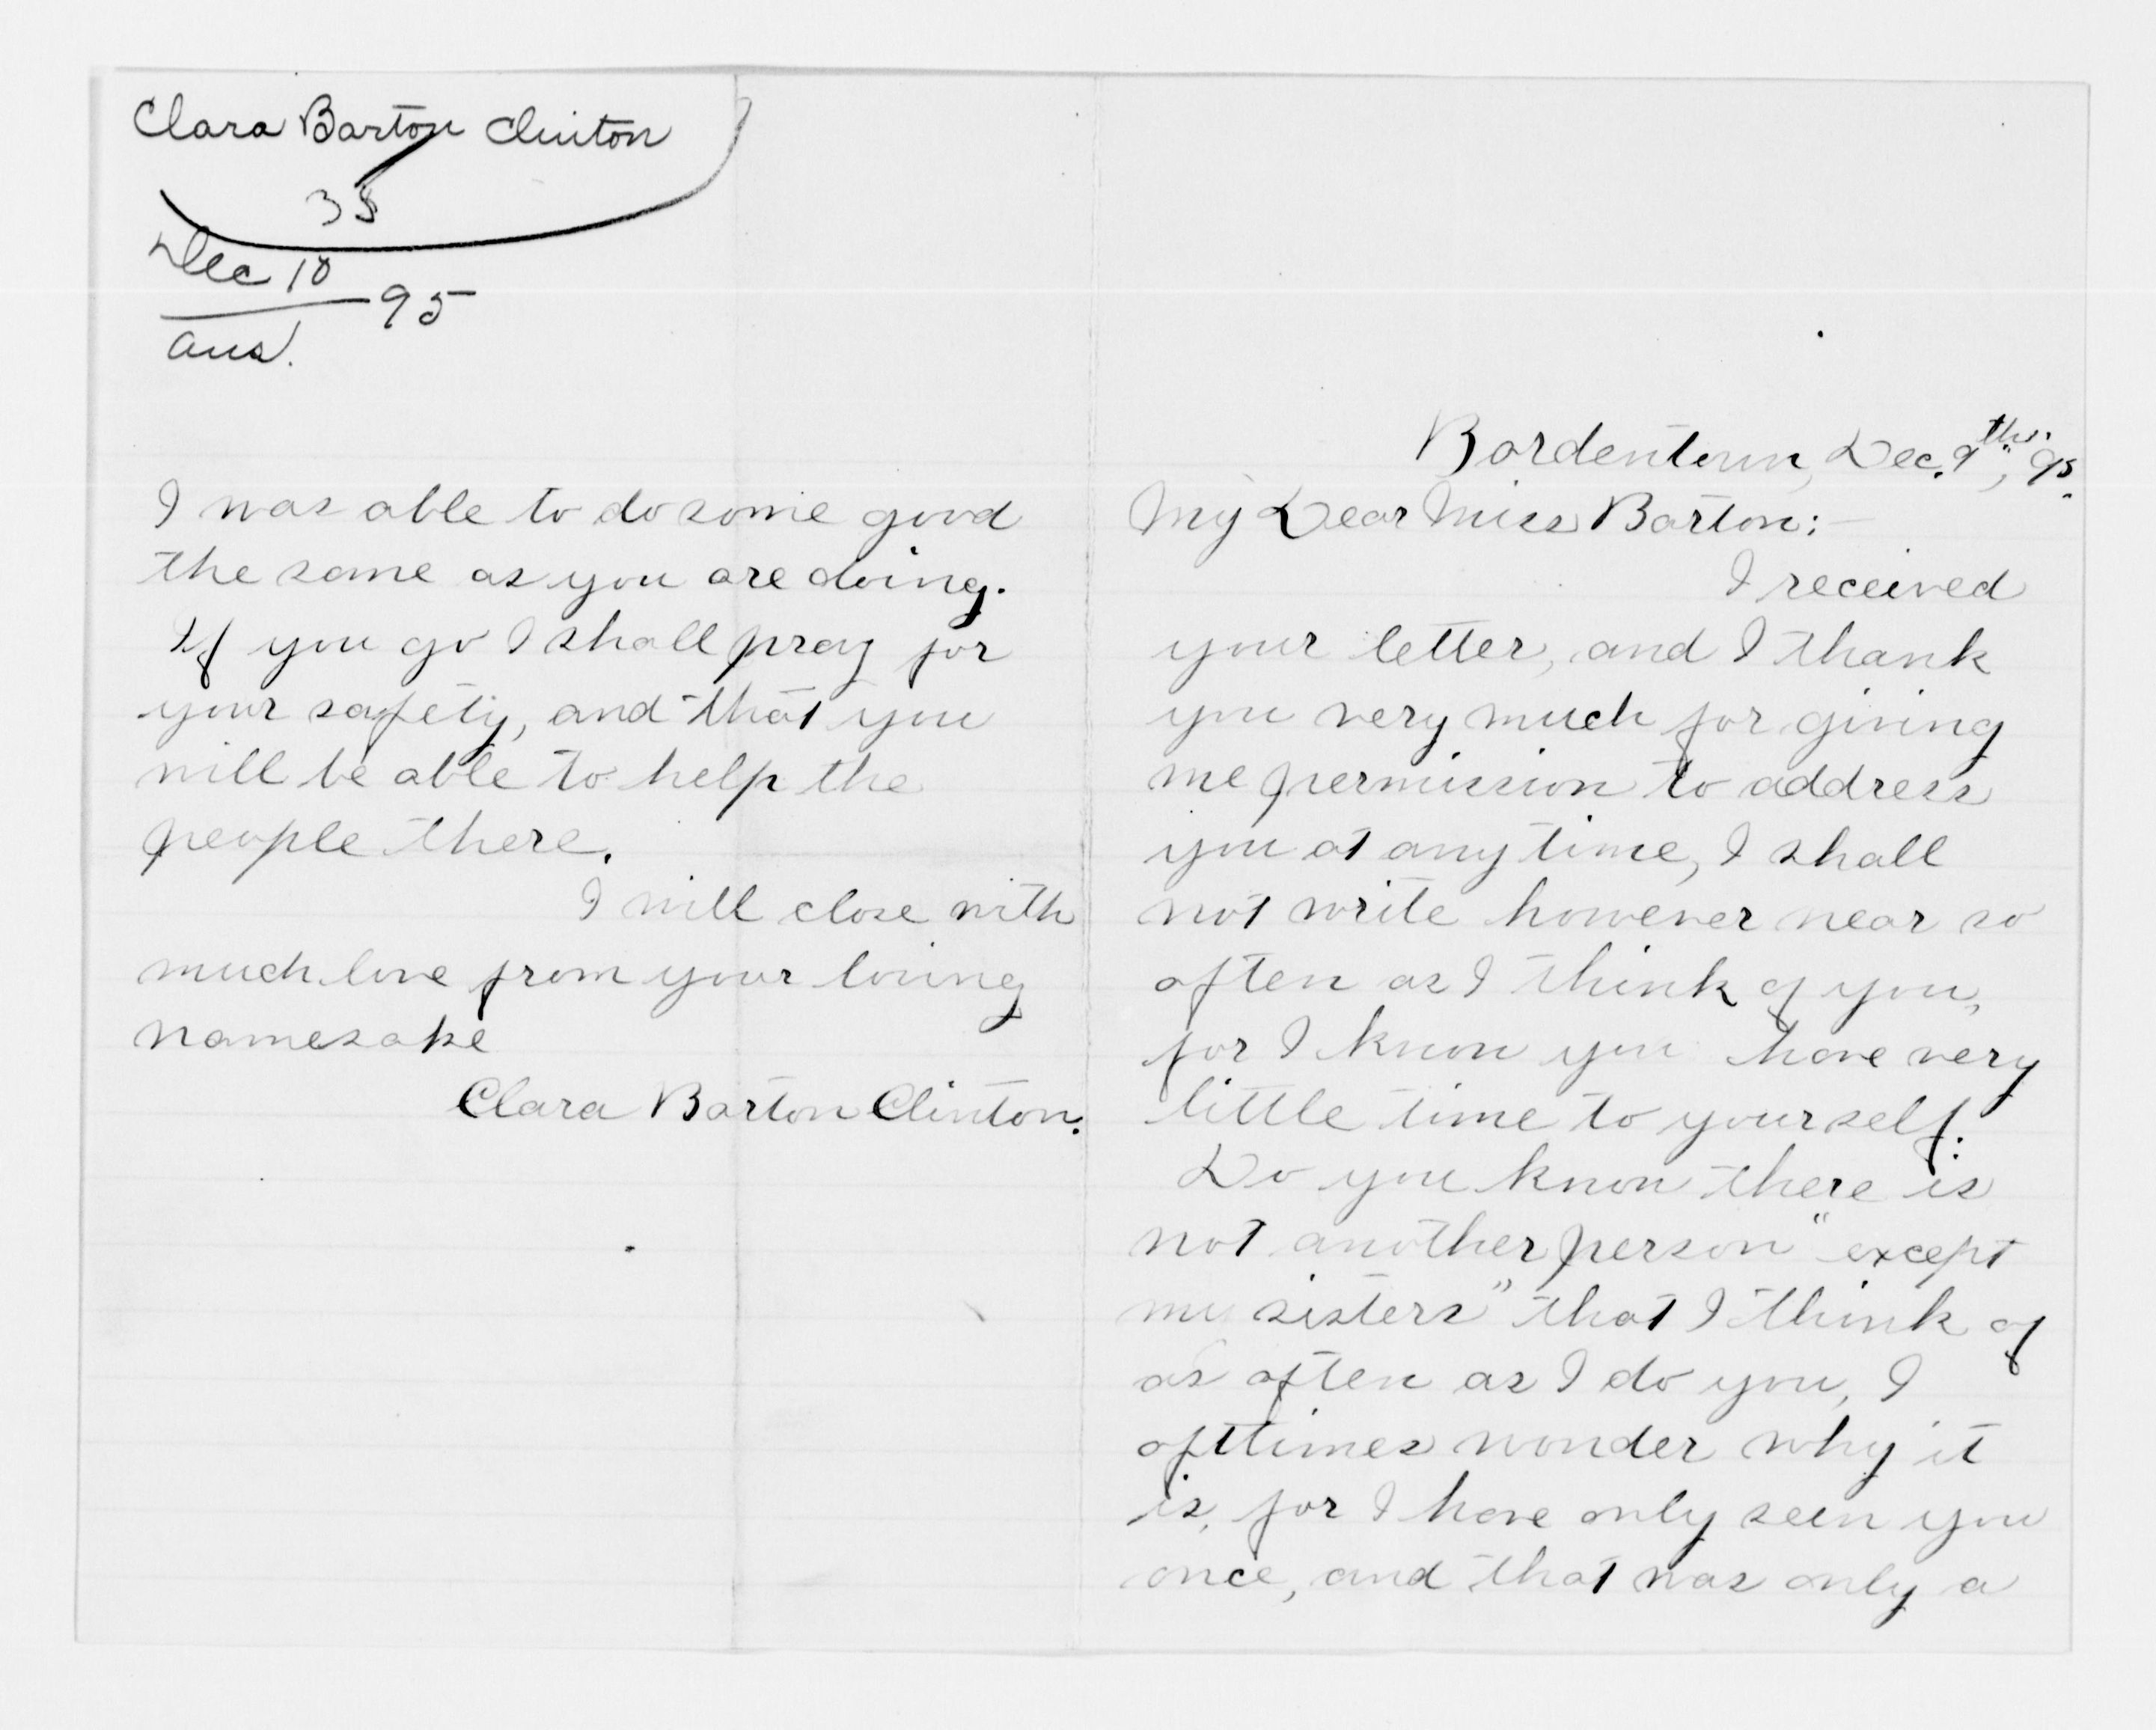 Clara Barton Clinton
Dec 10
95
ans.
I was able to do some good
the same as you are doing.
If you go I shall pray for
your safety, and that you
will be able to help the
people there.
I will close with
much love from your loving
namesake
Clara Barton Clinton.
Bordentown, Dec. 9th, 95.
My Dear Miss Barton:—
I received
your letter, and I thank
you very much for giving
me permission to address
you at any time, I shall
not write however near so
often as I think of you,
for I know you have very
little time to yourself.
Do you know there is
not another person "except
my sisters" that I think of
as often as I do you, I
ofttimes wonder why it
is, for I have only seen you
once, and that was only a